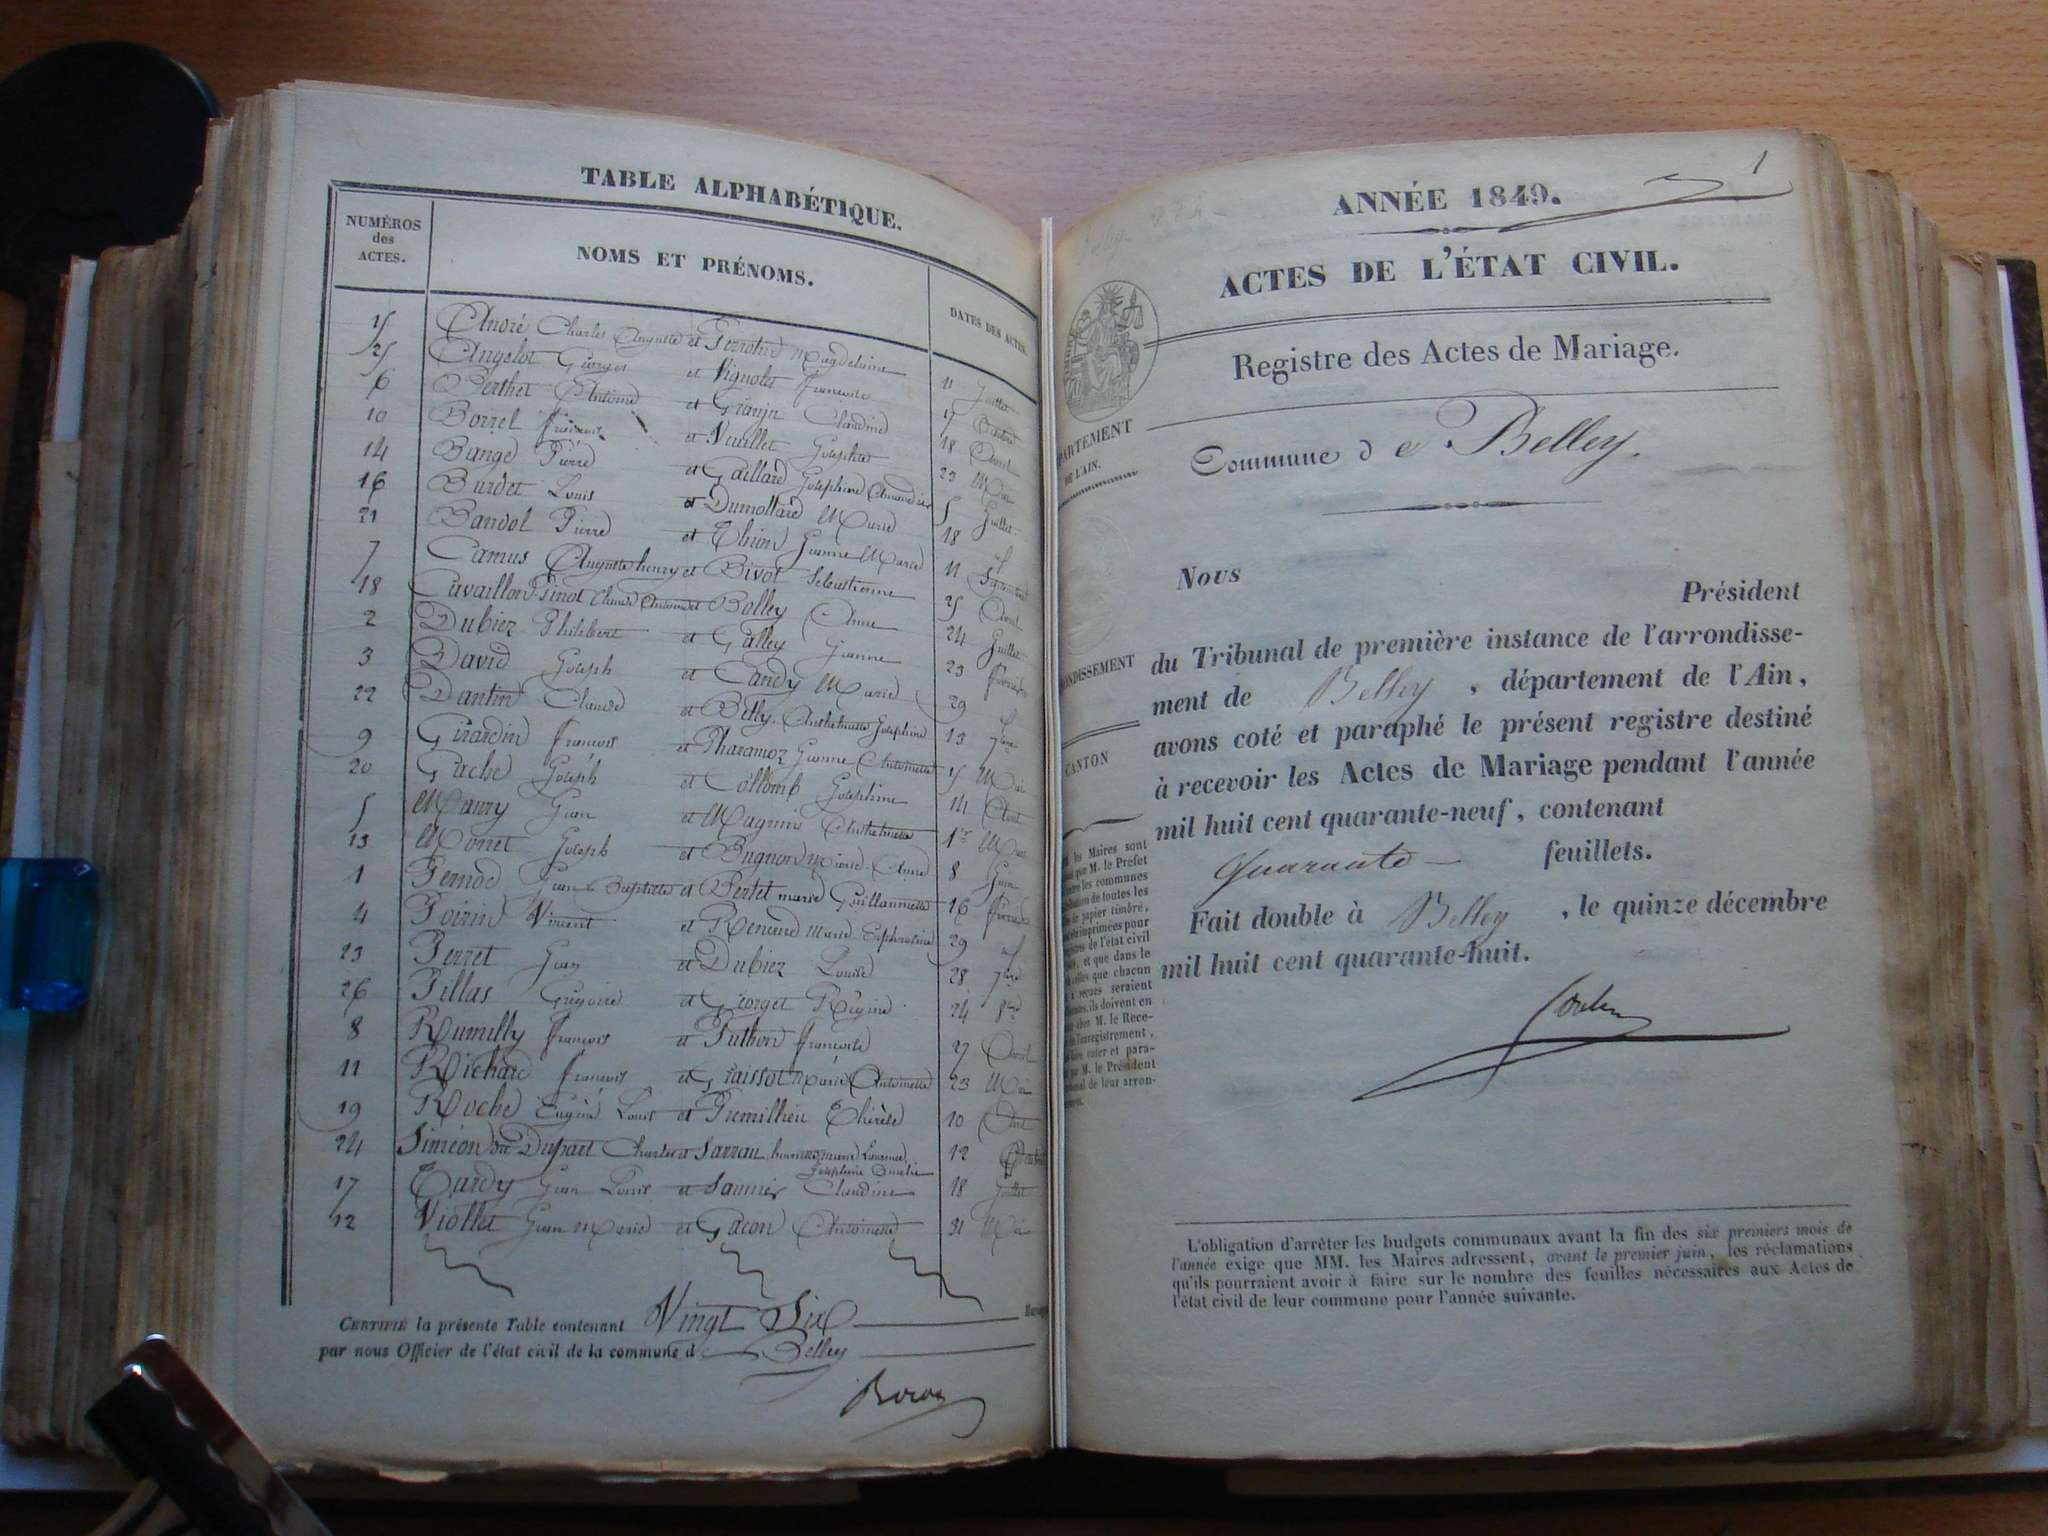 TABLE ALPHABÉTIQUE.
NUMÉROS
des
ACTES.
NOMS ET PRÉNOMS.
DATES DES ACTES.
15 André Charles Auguste et Perrotin Magdeleine 11 Juillet
25 Angelot Georges et Vignolet françoise 17
6 Berthet Antoine et Claudine 18 Avril
10 Borrel françois et Vuillet Josephte 23 Mai
14 Bange Pierre et Gaillard Josephine 5 Juillet
16 Burdet Louis et Dumollard Marie 18 id
21 Bandol Pierre et Jeanne Marie 11 Septembre
7 Camus Auguste henry et Bivot Sebastienne 25 Avril
18 Cavaillon Pinot Claude Antoine et Bolley Anne 24 Juillet
2 Dubiez Philibert et Galley Jeanne 23 février
3 David Joseph et Candy Marie 29 id
22 Dantin Claude et Betly Anthelmette Josephine 13 7bre
9 Girardin françois et Pharamoz Jeanne Antoinette 15 Mai
20 Gache Joseph et Collomb Josephine 14 Août
5 Maury Jean et Magnin Anthelmette 1er
13 Monet Joseph et Bugnon Marie Anne 8 Juin
1 Pernod Jean Baptiste et Bertet marie Guillaumette 16 février
4 Poirin Vincent et Renaud marie 29 id
23 Perret Jean et Dubiez Louise 28 7bre
26 Pillas Grégoire et Georget Régine 24 8bre
8 Rumilly françois et Puthon françoise 27 Avril
11 Richard françois et Graissot Marie Antoinette 23 Mai
19 Roche Eugène Louis et Premillieu Thérèse 10 Août
24 Siméon dit Dupart Charles et Sarran marie Laurence 12
Josephine
17 Tardy Jean Louis et Saunier Claudine 18 Juillet
12 Viollet Jean Marie et Gacon Antoinette 31 Mai
CERTIFIÉ la présente Table contenant Vingt Six
par nous Officier de l'état civil de la commune de Belley
1
ANNÉE 1849.
ACTES DE L'ÉTAT CIVIL.
Registre des Actes de Mariage.
PARTEMENT
DE L'AIN.
Commune de Belley.
Nous
Président
ONDISSEMENT
du Tribunal de première instance de l'arrondisse-
ment de Belley, département de l'Ain,
avons coté et paraphé le présent registre destiné
CANTON
à recevoir les Actes de Mariage pendant l'année
mil huit cent quarante-neuf, contenant
Quarante feuillets.
Fait double à Belley, le quinze décembre
mil huit cent quarante-huit.
les Maires sont
que M. le Préfet
les communes
de toutes les
de papier timbré,
imprimées pour
de l'état civil
et que dans le
celles que chacun
a reçues seraient
ils doivent en
M. le Rece-
l'enregistrement,
coter et para-
M. le Président
de leur arron-
L'obligation d'arrêter les budgets communaux avant la fin des six premiers mois de
l'année exige que MM. les Maires adressent, avant le premier juin, les réclamations
qu'ils pourraient avoir à faire sur le nombre des feuilles nécessaires aux Actes de
l'état civil de leur commune pour l'année suivante.